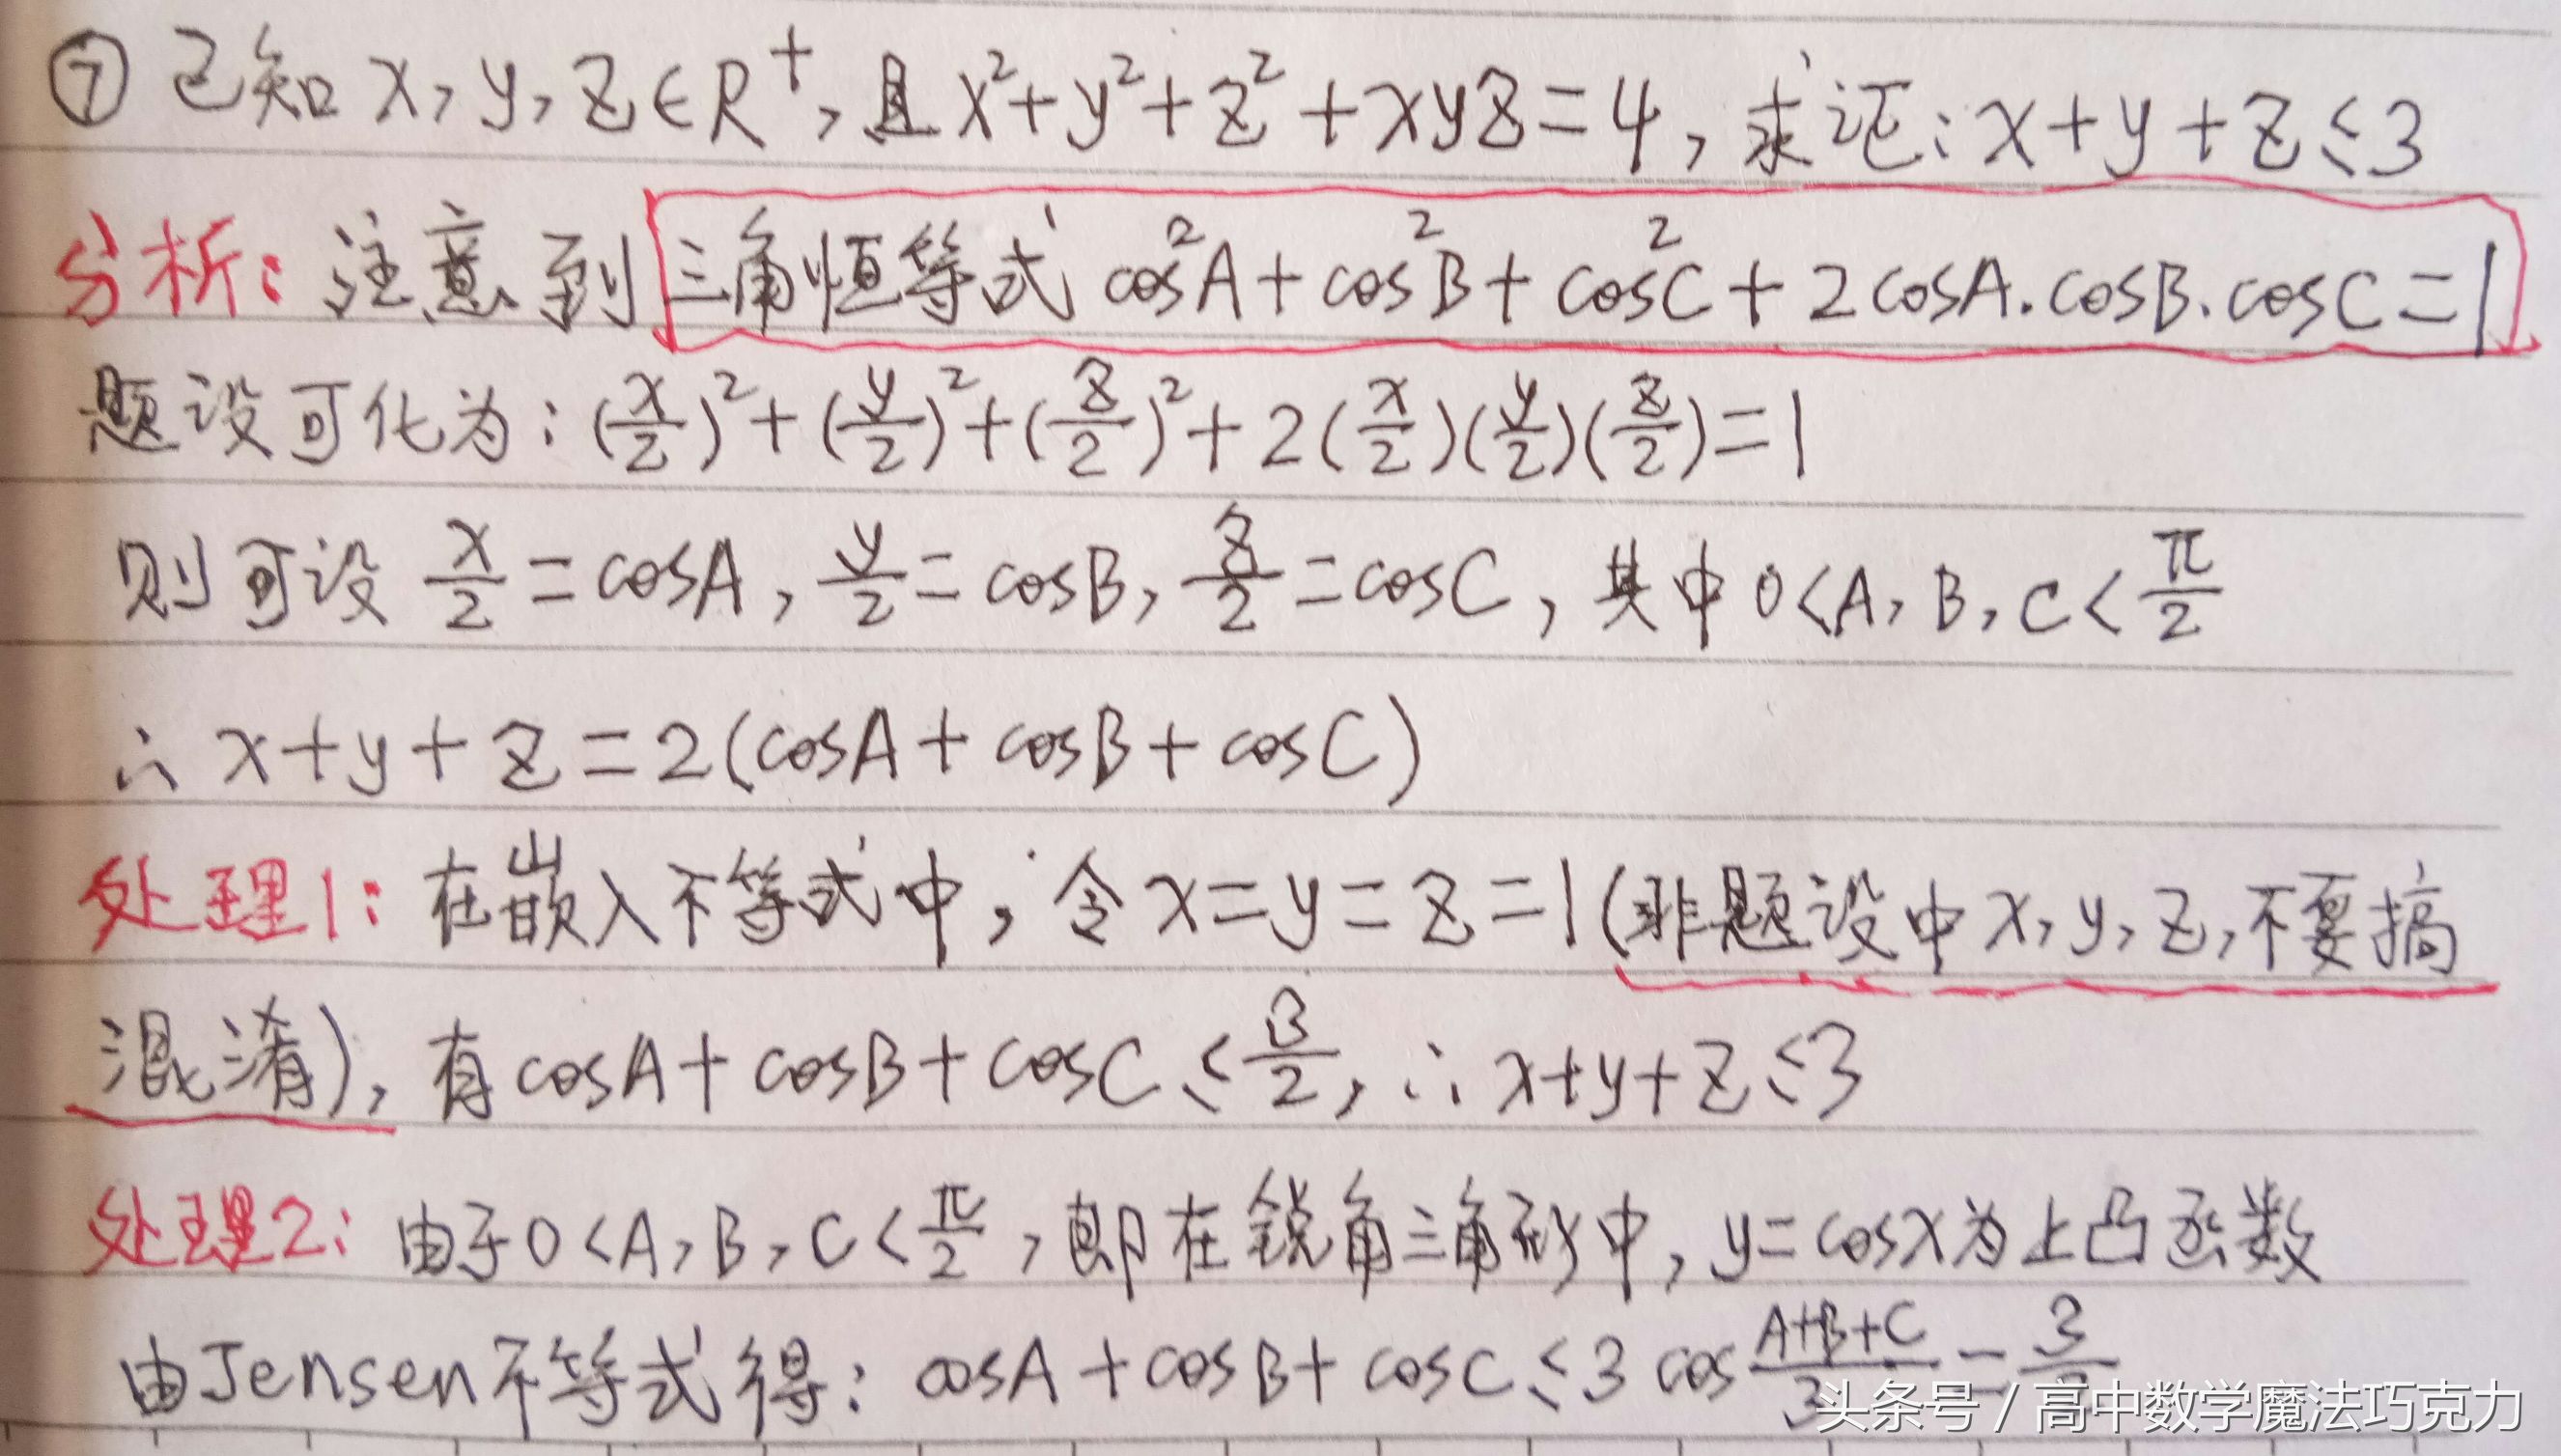 ⑦ 已知 x, y, z∈R⁺, 且 x²+y²+z²+xyz=4, 求证: x+y+z≤3
分析: 注意到三角恒等式 cos²A+cos²B+cos²C+2cosA·cosB·cosC=1
题设可化为: (x/2)²+(y/2)²+(z/2)²+2(x/2)(y/2)(z/2)=1
则可设 x/2=cosA, y/2=cosB, z/2=cosC, 其中 0<A, B, C<π/2
∴ x+y+z=2(cosA+cosB+cosC)
处理1: 在嵌入不等式中, 令 x=y=z=1(非题设中 x, y, z, 不要搞
混淆), 有 cosA+cosB+cosC≤3/2, ∴ x+y+z≤3
处理2: 由于 0<A, B, C<π/2, 即在锐角三角形中, y=cosx为上凸函数
由Jensen不等式得: cosA+cosB+cosC≤3cos (A+B+C)/3=3/2
头条号 / 高中数学魔法巧克力